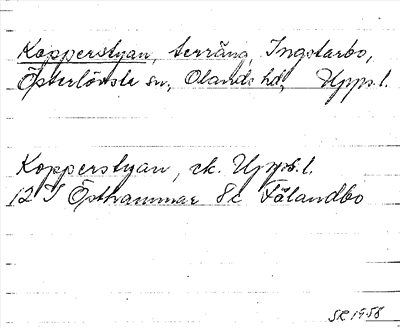 Kopperstyan, terräng, Ingstarbo,
Österlövsta sn, Olands hd, Upps.l.
Kopperstyan, ek. Upps.l.
12 I Östhammar 8c Lölandbo
SR 1958